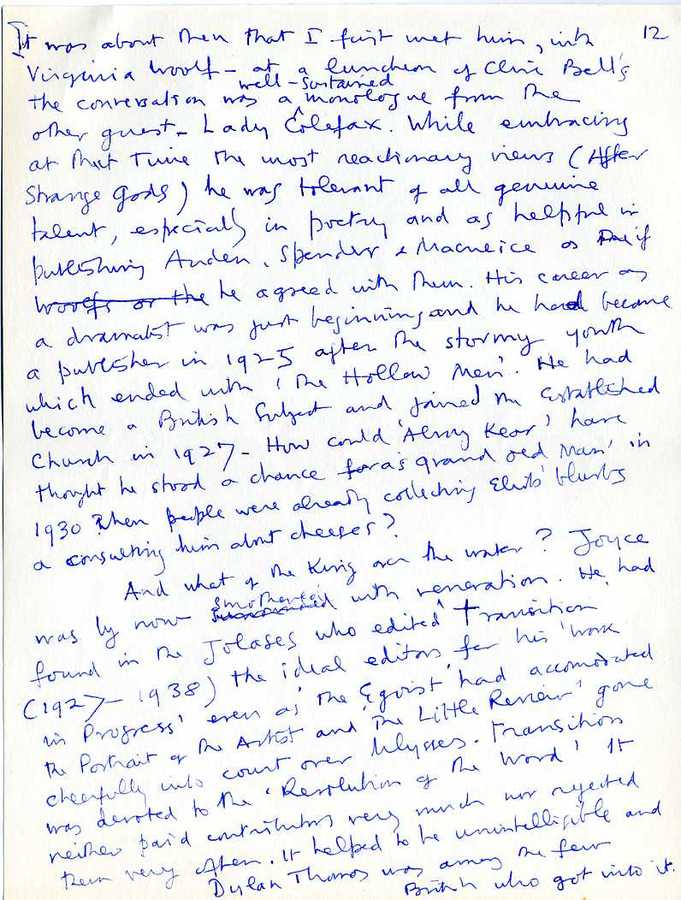 12
It was about then that I first met him, with
Virginia Woolf – at a luncheon of Clive Bell's
the conversation was a well-sustained monologue from the
other guest – Lady Colefax. While embracing
at that time the most reactionary views (After
Strange Gods) he was tolerant of all genuine
talent, especially in poetry and as helpful in
publishing Auden, Spender & Macneice as if
he agreed with them. His career as
a dramatist was just beginning and he had become
a publisher in 1925 after the stormy youth
which ended with 'The Hollow Men'. He had
become a British Subject and joined the established
Church in 1927 – How could 'Alroy Kear' have
thought he stood a chance as 'grand old man' in
1930 when people were already collecting Eliots' blurbs
a consulting him about cheeses?
And what of the King over the water? Joyce
was by now smothered with veneration. He had
found in the Jolases who edited 'transition
(1927–1938) the ideal editors for his 'work
in Progress' even as 'the Egoist' had accomodated
the Portrait of the Artist and 'the Little Review' gone
cheerfully into court over Ulysses. Transition
was devoted to the 'Revolution of the Word' It
neither paid contributors very much nor rejected
them very often. It helped to be unintelligible and
Dylan Thomas was among the few
British who got into it.